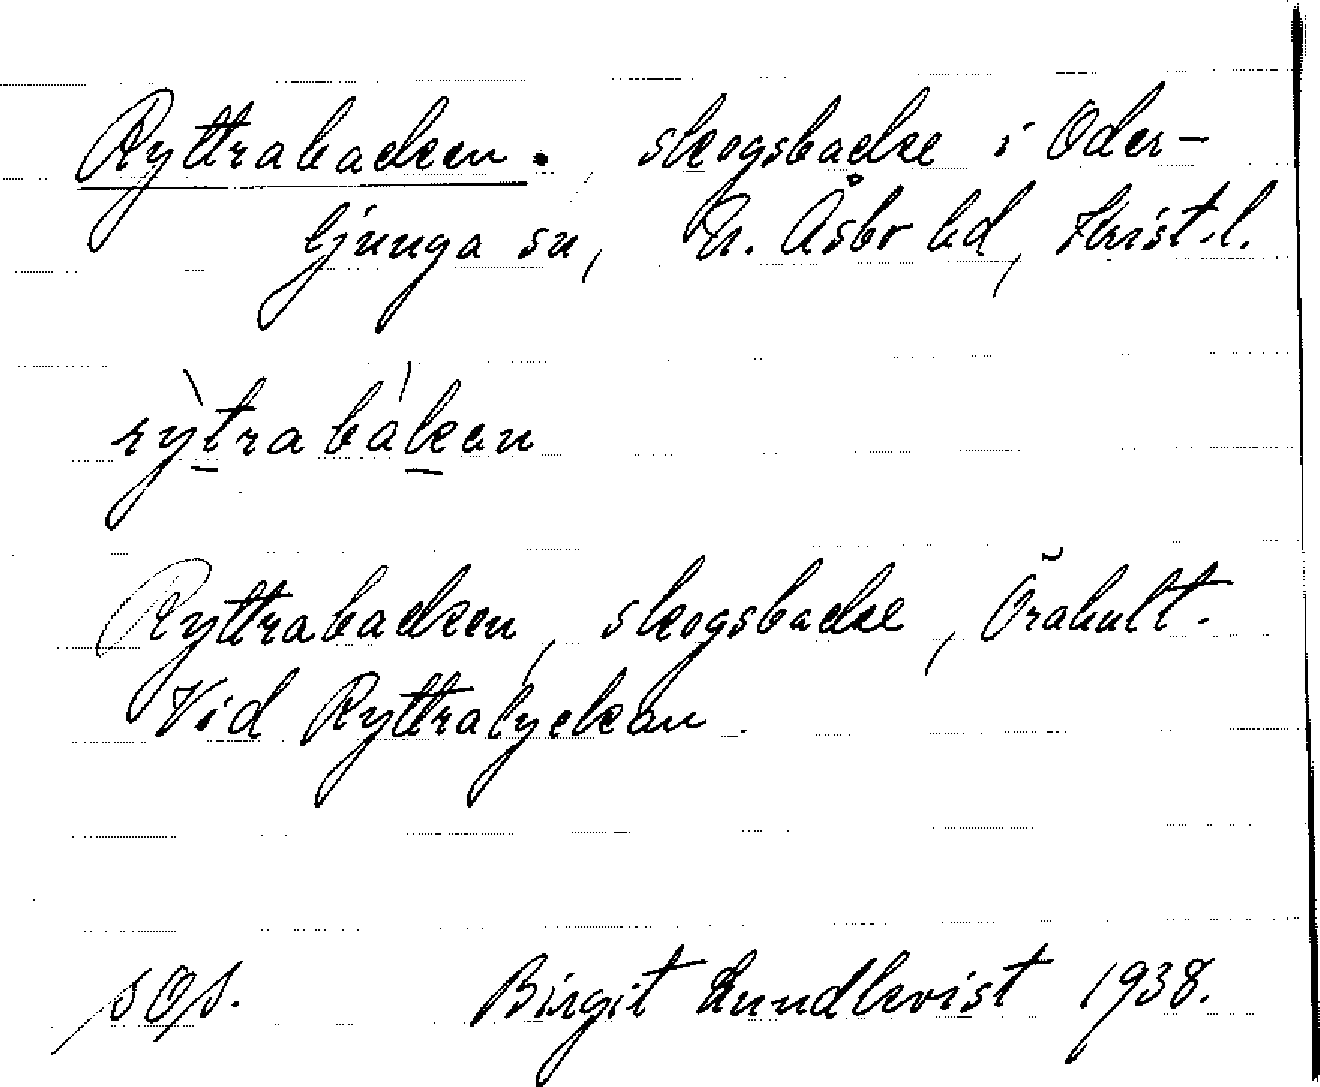 Ryttrabacken. skogsbacke i Oder-
ljunga sn, N. Åsbo hd, Krist.l.
rỳtrabákan
Ryttrabacken, skogsbacke, Örahult.
Vid Ryttralyckan
sOs. Birgit Lundkvist 1938.